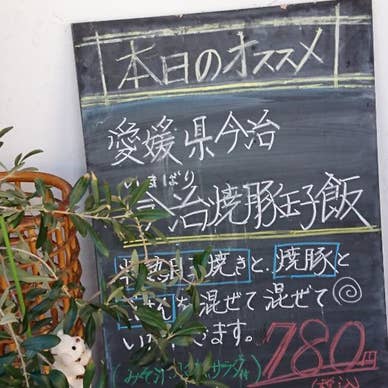 本日のオススメ
愛媛県今治
いまばり
今治焼豚玉子飯
半熟目玉焼きと、焼豚と
ごはんを混ぜて混ぜて
います。
780円
(みそ サラダ付)